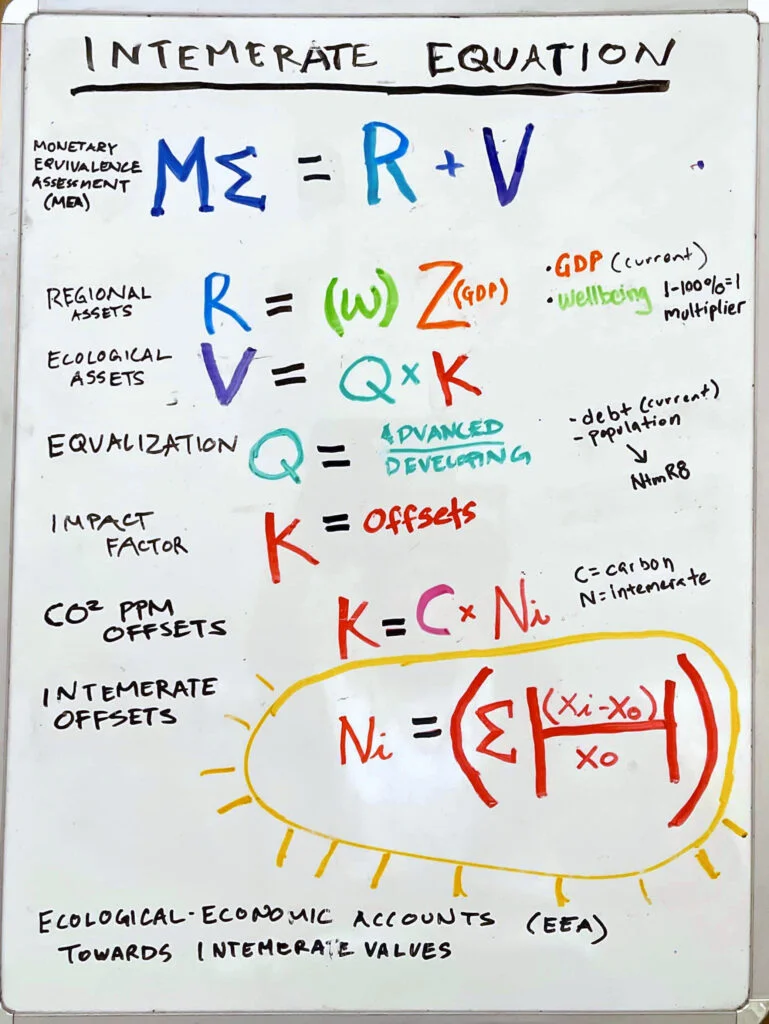 INTEMERATE EQUATION
MONETARY
EQUIVALENCE
ASSESSMENT
(MEA)
MΣ = R + V
REGIONAL
ASSETS
R = (W) Z (GDP)
• GDP (current)
• wellbeing 1-100%=1
multiplier
ECOLOGICAL
ASSETS
V = Q × K
EQUALIZATION
Q = ADVANCED
DEVELOPING
- debt (current)
- population
↘
IMPACT
FACTOR
K = Offsets
CO² PPM
OFFSETS
K = C × Ni
C = carbon
N = intemerate
INTEMERATE
OFFSETS
Ni = (Σ |(Xi - X0)
X0|)
ECOLOGICAL-ECONOMIC ACCOUNTS (EEA)
TOWARDS INTEMERATE VALUES